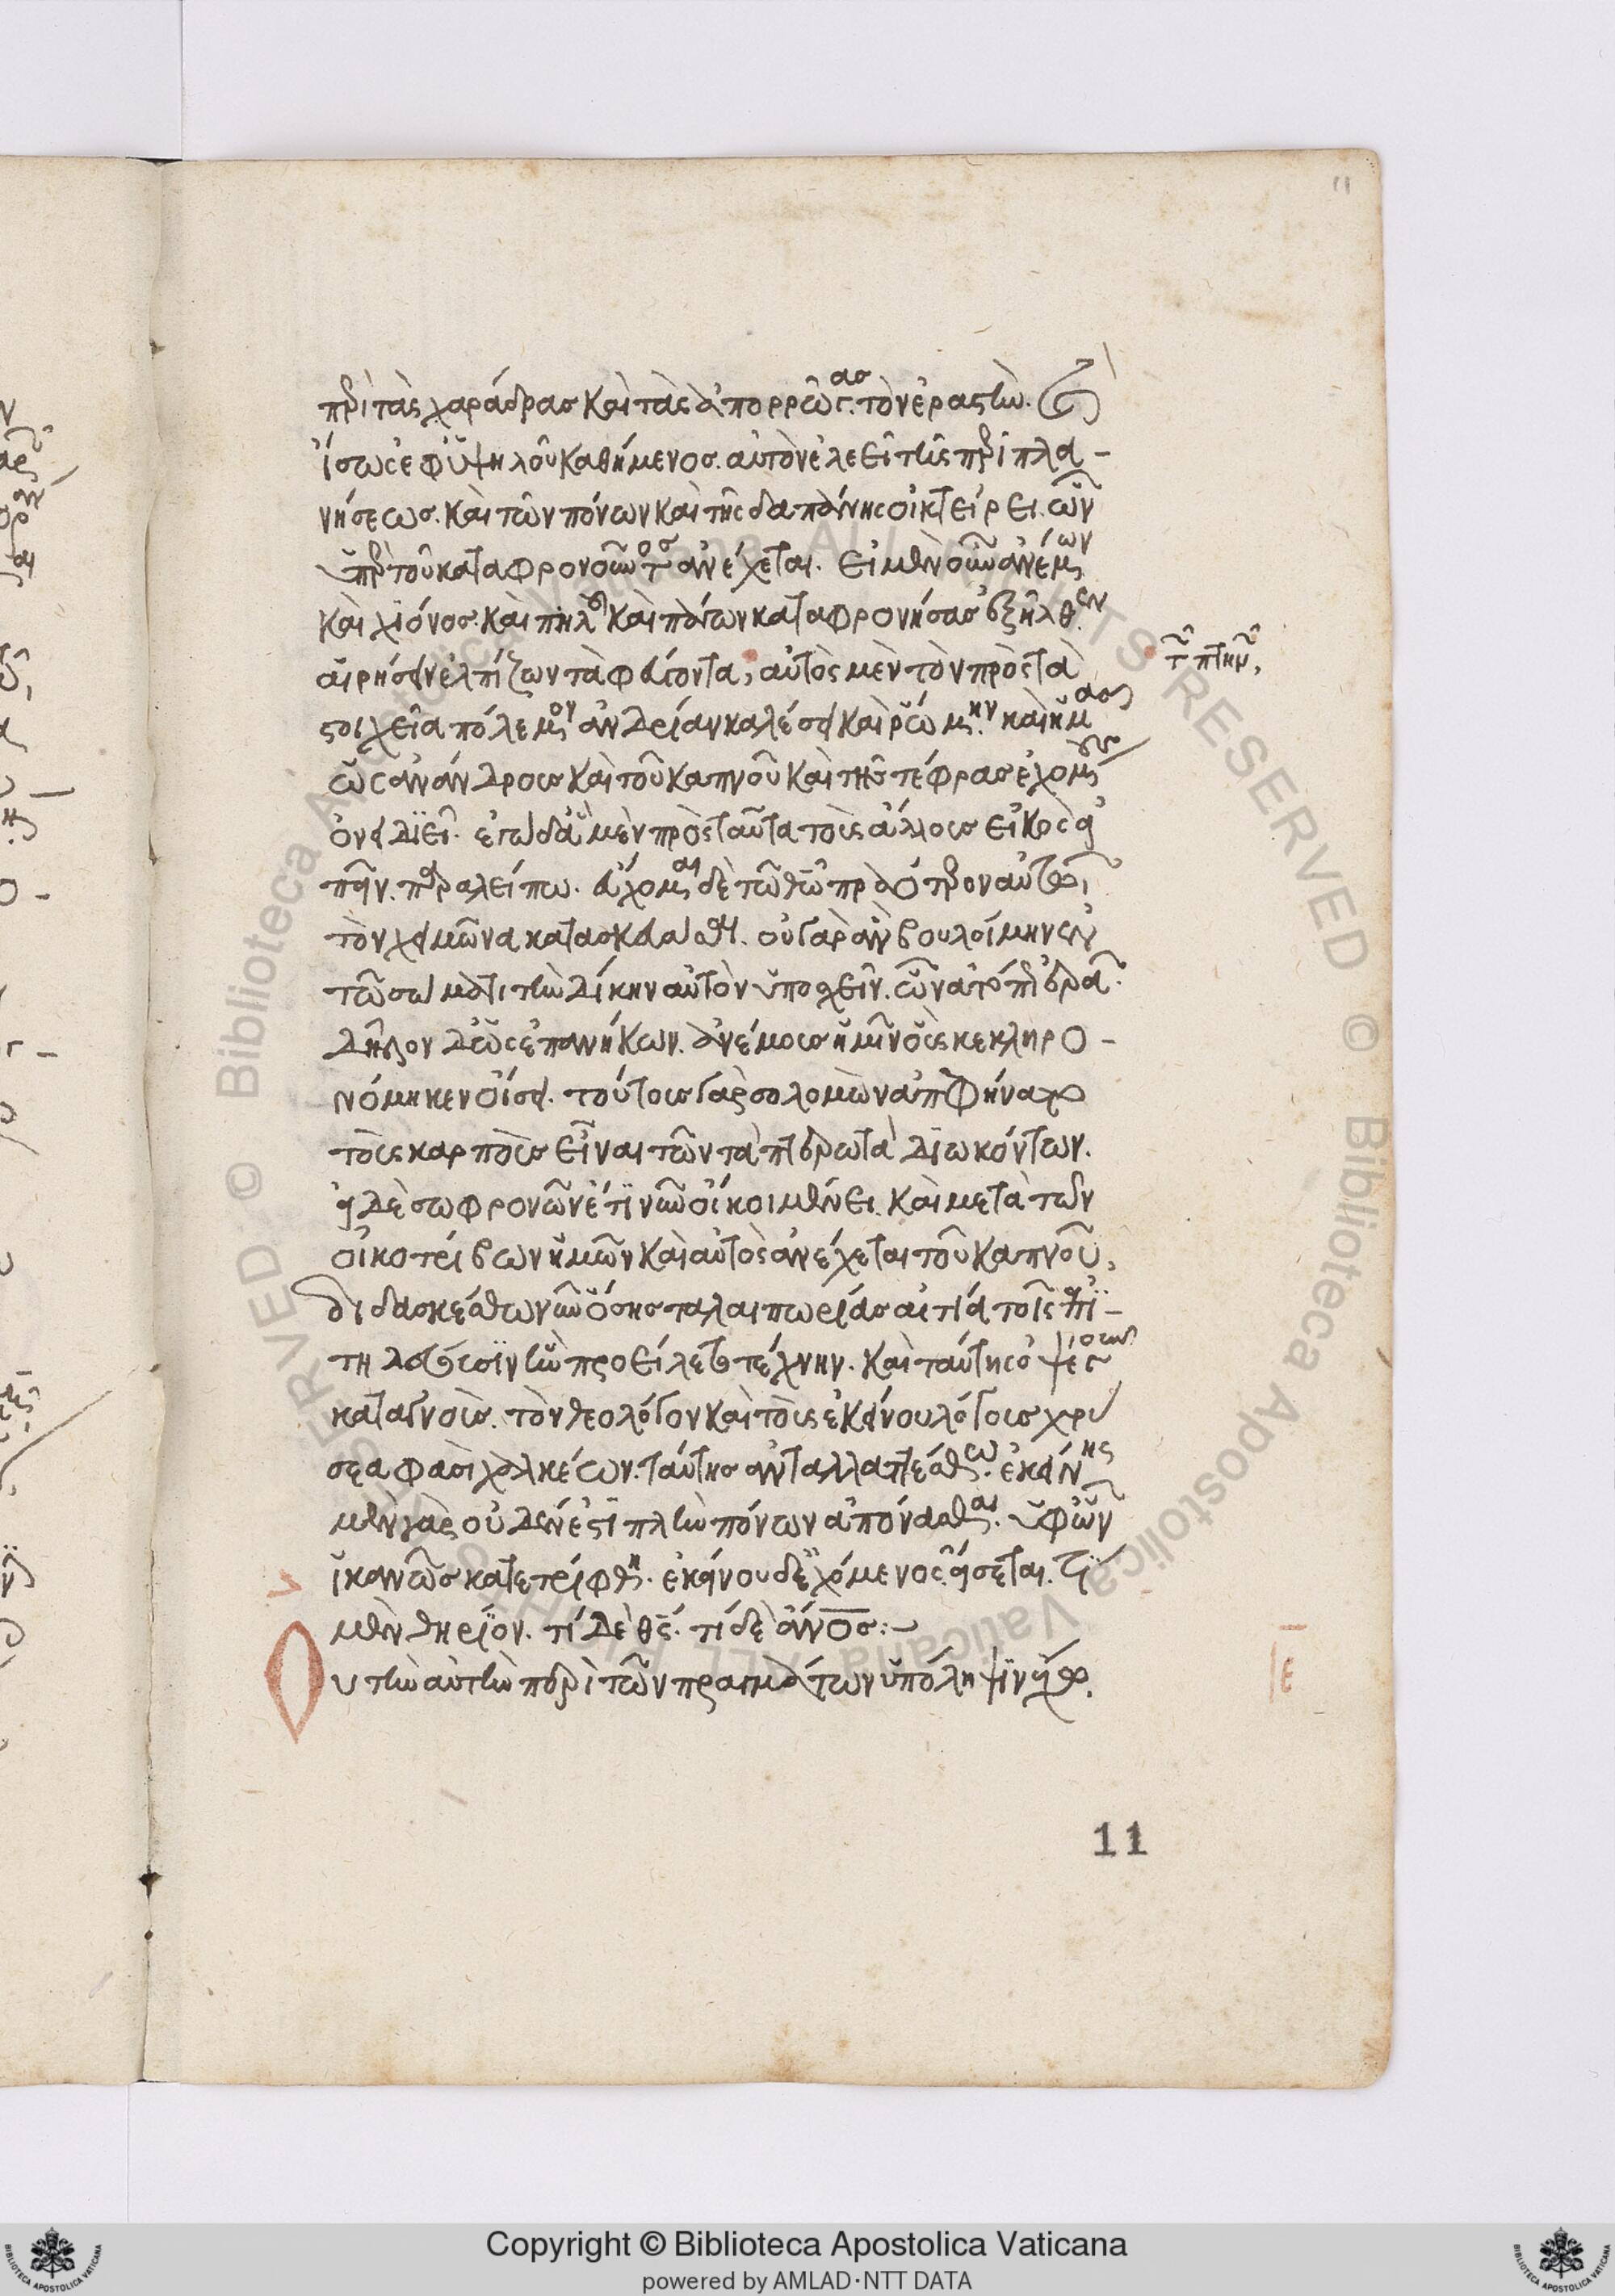 11
περὶ τὰς χαράδρας καὶ τὰς ἀπορρῶγας τὸν ἐραστὴν.
ἴσως ἐφ ὑψηλοῦ καθήμενος. αὐτὸν ἐλεεῖ τῆς περιπλα-
νήσεως. καὶ τῶν πόνων καὶ τῆς δαπάνης οἰκτείρει. ὧν
ὑπὲρ τοῦ καταφρονοῦντος ἀνέχεται. εἰ μὲν οὖν ἀνέμων
καὶ χιόνος καὶ πηλοῦ καὶ πάγων καταφρονήσας ἐξῆλθεν
αἱρήσειν ἐλπίζων τὰ φεύγοντα, αὐτὸς μὲν τὸν πρὸς τὰ
τῶν πτηνῶν,
στοιχεῖα πόλεμον ἀνδρίαν καλέσει καὶ ῥώμην καὶ ἡμᾶς
ὡς ἀνάνδρους καὶ τοῦ καπνοῦ καὶ τῆς τέφρας ἐχομένους
ὀνειδιεῖ. ἐγὼ δ ἃ μὲν πρὸς ταῦτα τοῖς ἄλλοις εἰκὸς
εἰπεῖν. παραλείπω. εὔχομαι δὲ τῷ θεῷ πραότερον αὐτῷ
τὸν χειμῶνα κατασκευάσαι. οὐ γὰρ ἂν βουλοίμην ἐν
τῷ σώματι τὴν δίκην αὐτὸν ὑποσχεῖν. ὧν
δῆλον δ ὡς ἐπανήκων. ἀνέμους ἡμῖν οὓς κεκληρο-
νόμηκεν οἴσει. τούτους γὰρ σολομὼν ἀπεφήνατο
τοὺς καρποὺς εἶναι τῶν τὰ πτερωτὰ διωκόντων.
εἰ δὲ σωφρονῶν ἔτι νῦν οἴκοι μένει. καὶ μετὰ τῶν
οἰκοτρίβων ἡμῶν καὶ αὐτὸς ἀνέχεται τοῦ καπνοῦ,
διδασκέσθω νῦν ὅσης ταλαιπωρίας αἰτία τοῖς ἐπι-
τηδεύουσιν ἣν προείλετο τέχνην. καὶ ταύτης ὀψὲ γοῦν
καταγνοὺς. τὸν θεολόγον καὶ τοὺς ἐκείνου λόγους χρύ
σεα φασὶ χαλκέων. ταύτης ἀνταλλαττέσθω. ἐκείνης
μὲν γὰρ οὐδὲν ἔστι πλὴν πόνων ἀπόνασθαι. ὑφ ὧν
ἱκανῶς κατετρίφθη. ἐκείνου δ ἐχόμενος εἴσεται. τί
μὲν θηρίον. τί δὲ θς. τί δὲ ἄνος:
Οὐ τὴν αὐτὴν περὶ τῶν πραγμάτων ὑπόληψιν
ιε
11
Copyright © Biblioteca Apostolica Vaticana
powered by AMLAD·NTT DATA